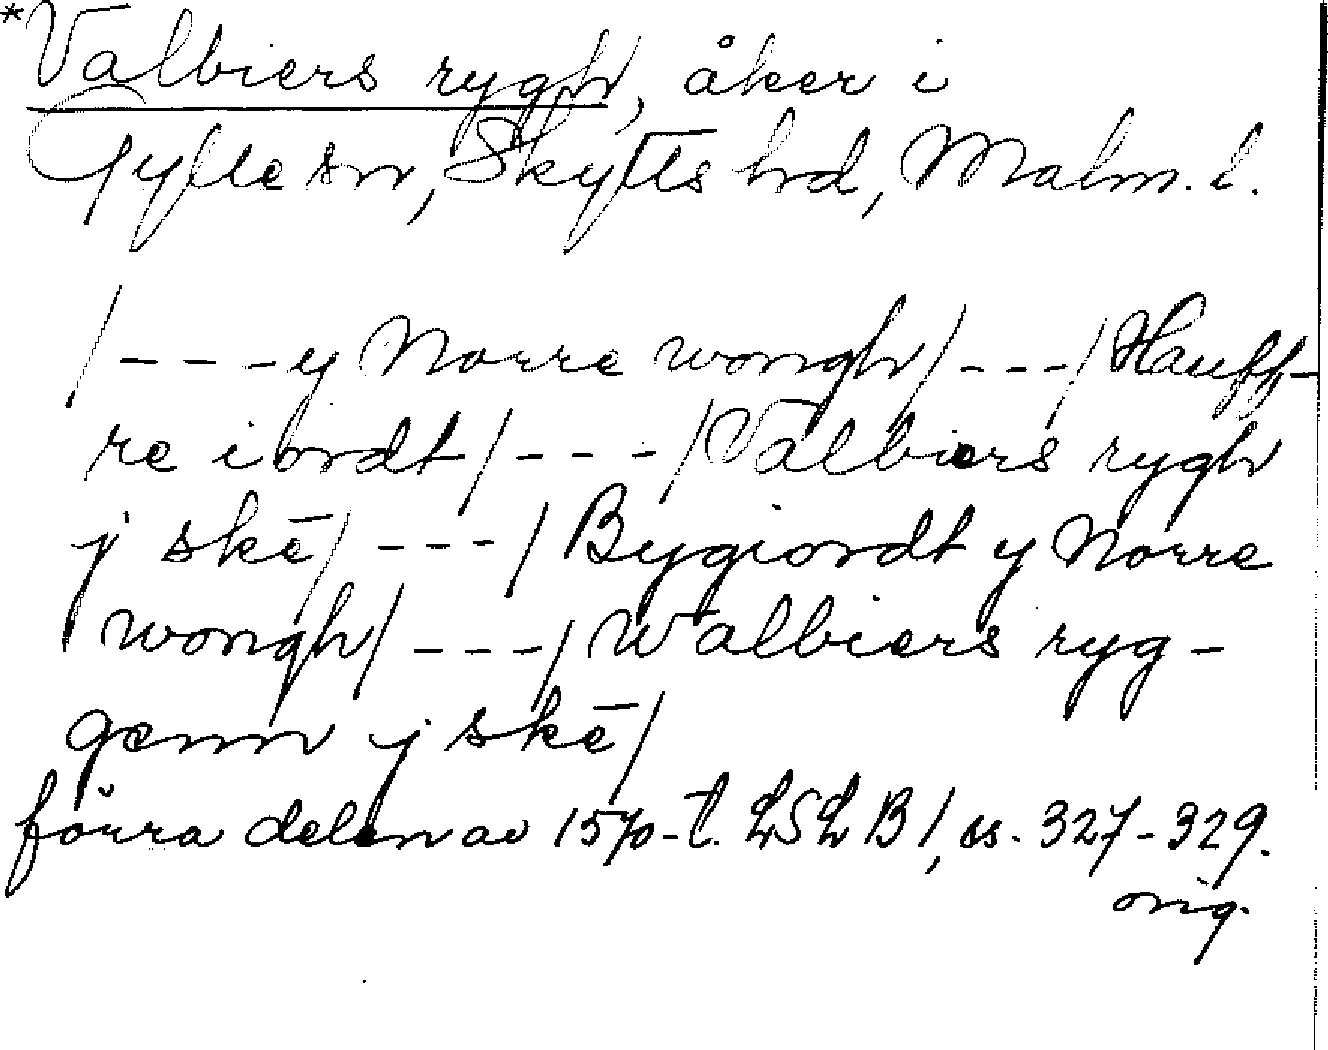 *Valbiers rygh, åker i
Gylle sn, Skytts hd, Malm. l.
/---y Norre wongh/---/Hauff-
re iordt/---/Valbiers rygh
j skē/---/Bygiordt y Norre
wongh/---/Walbiers ryg-
genn j skē/
förra delen av 1570-t. LSL B 1, ss. 327-329.
orig.